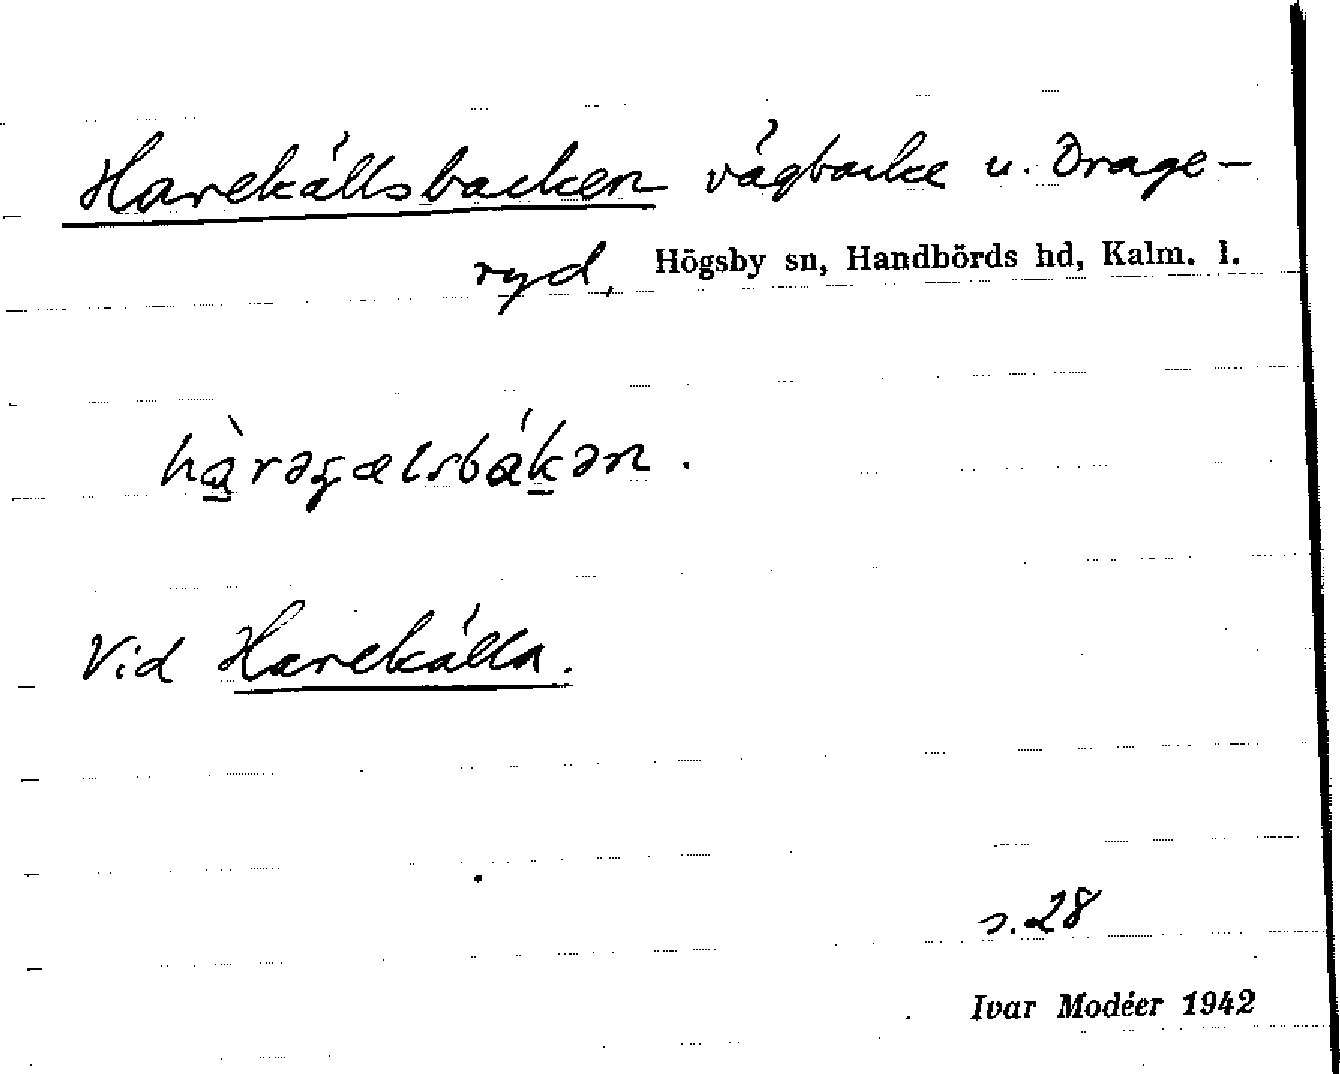 Harekällsbacken vägbacke u. Drage-
ryd, Högsby sn, Handbörds hd, Kalm. l.
hàrəɕælsbákən.
Vid Harekälla.
s. 28
Ivar Modéer 1942